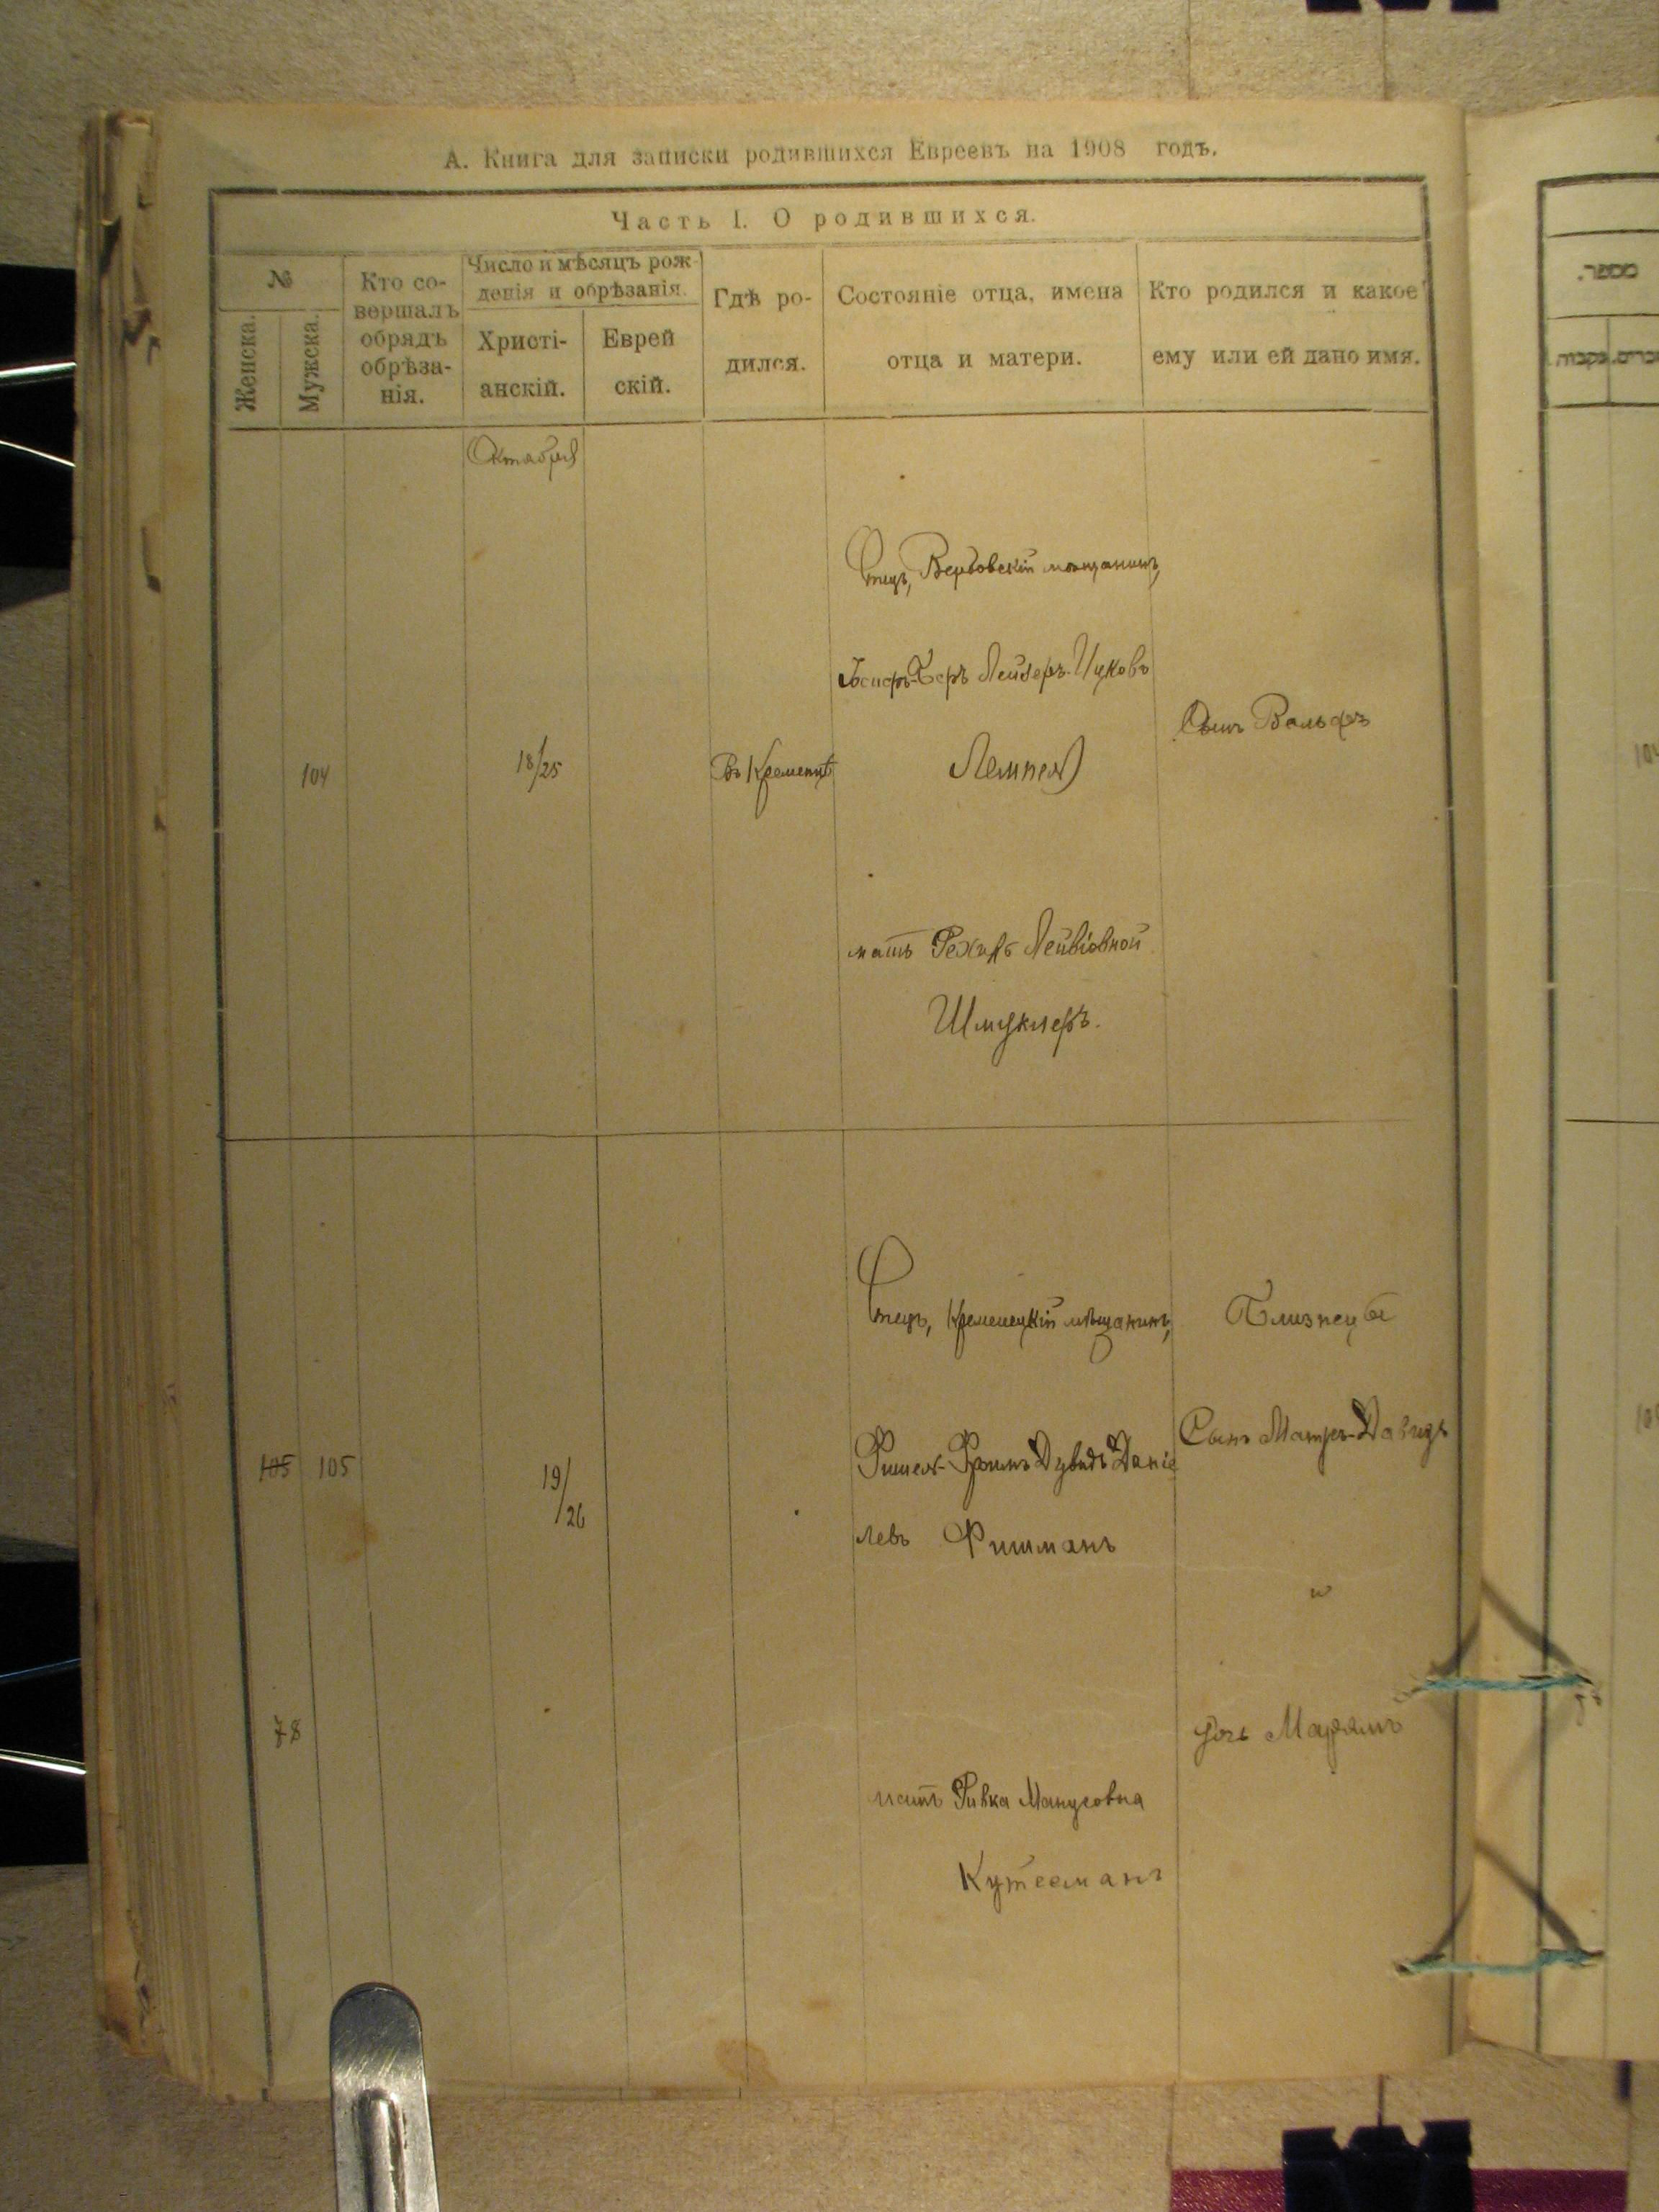 А. Книга для записки родившихся Евреевъ на 1908 годъ.
Часть I. О родившихся.
№
Женска.
Мужска.
Кто со-
вершалъ
обрядъ
обрѣза-
нія.
Число и мѣсяцъ рож-
денія и обрѣзанія.
Христі-
анскій.
Еврей
скій.
Гдѣ ро-
дился.
Состояніе отца, имена
отца и матери.
Кто родился и какое
ему или ей дано имя.
Октября
104
18/25
Въ Кременцѣ
Отецъ, Вербовскій мѣщанинъ,
Іосифъ-Беръ Лейзеръ-Ицковъ
Лемпел
мать Рехиль Лейвіовной
Шмуклеръ.
Сынъ Вольфъ
105 105
19/26
Отецъ, Кременецкій мѣщанинъ,
Фишель-Фроимъ Дувидъ Даніе
левъ Фишманъ
мать Ривка Манусовна
Кутесманъ
Близнецы
Сынъ Матусъ-Давидъ
и
78
дочь Марьямъ
מספר.
נקבות.
זכרים.